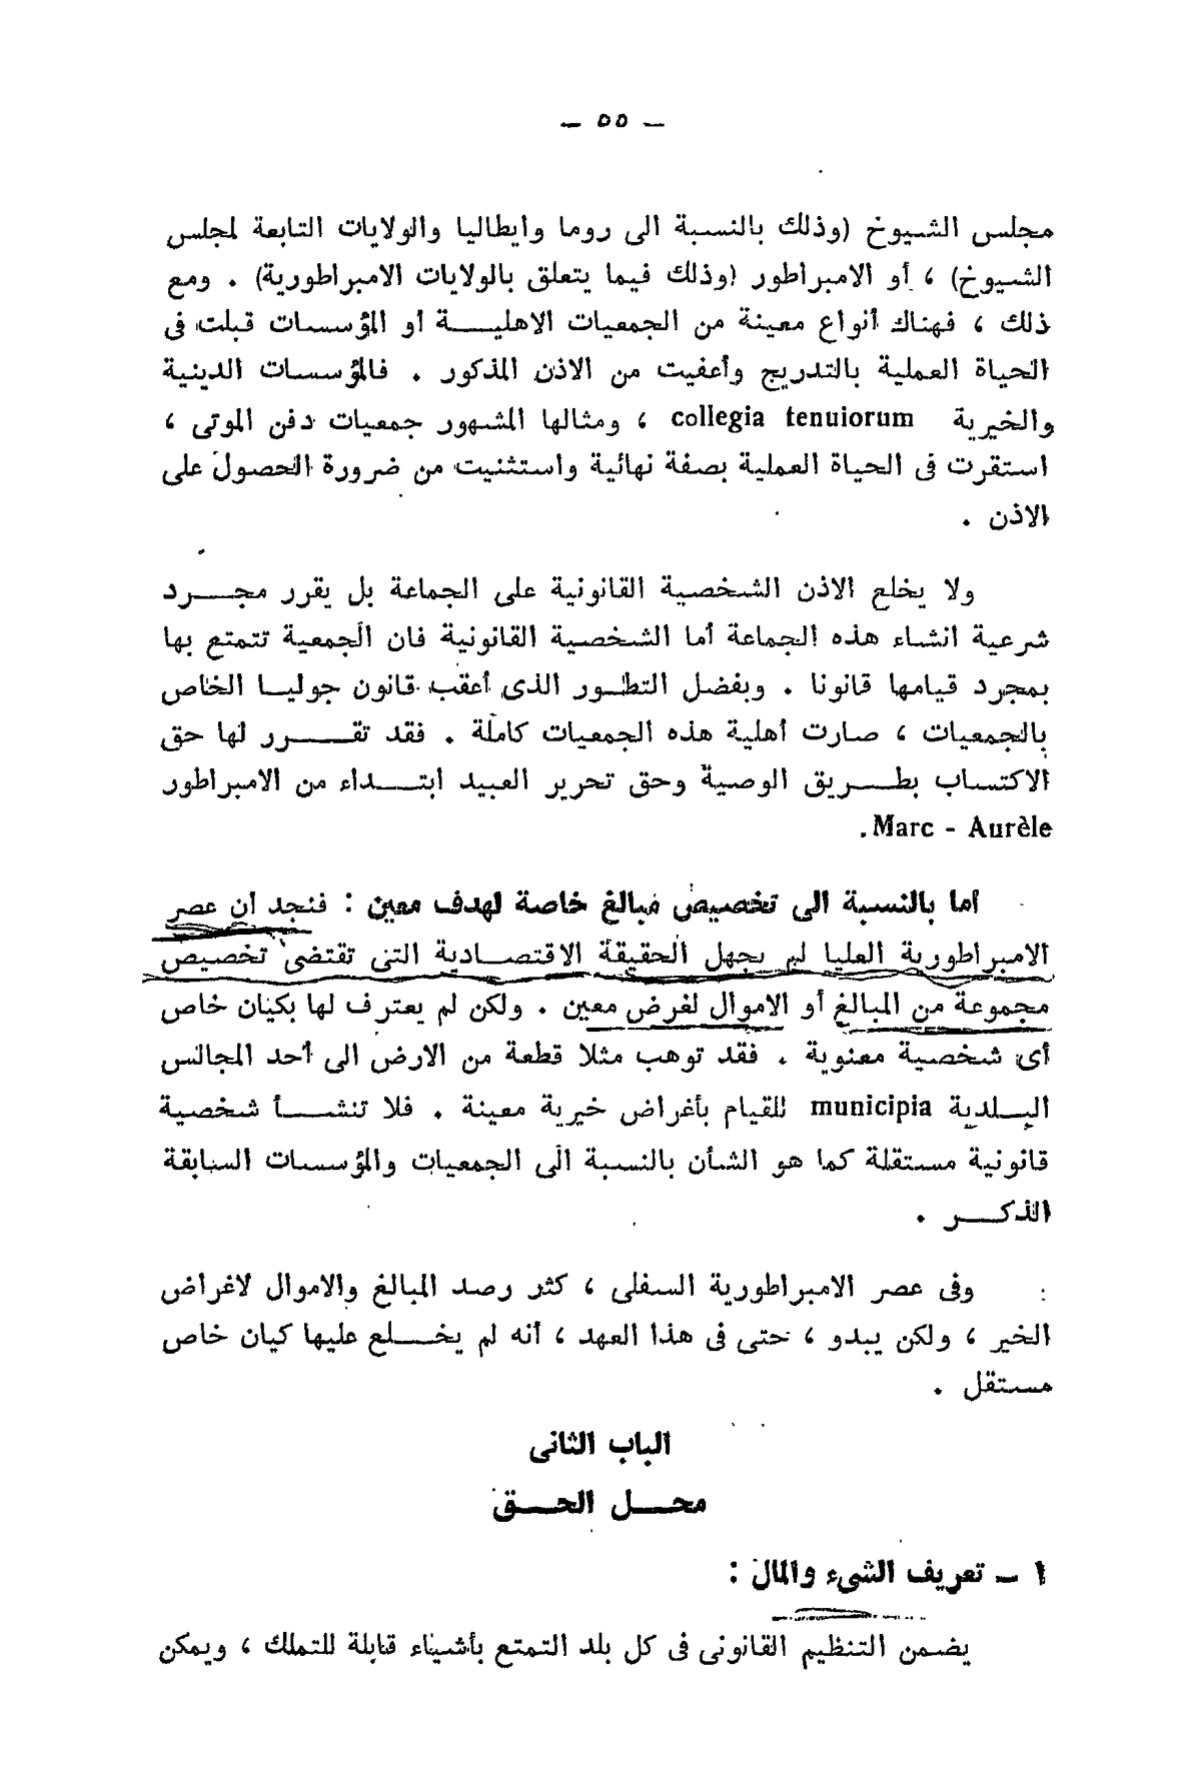 — ٥٥ —
مجلس الشيوخ (وذلك بالنسبة الى روما وايطاليا والولايات التابعة لمجلس
الشيوخ) ، أو الامبراطور (وذلك فيما يتعلق بالولايات الامبراطورية) . ومع
ذلك ، فهناك أنواع معينة من الجمعيات الاهلية أو المؤسسات قبلت فى
الحياة العملية بالتدريج وأعفيت من الاذن المذكور . فالمؤسسات الدينية
والخيرية collegia tenuiorum ، ومثالها المشهور جمعيات دفن الموتى ،
استقرت فى الحياة العملية بصفة نهائية واستثنيت من ضرورة الحصول على
الاذن .
ولا يخلع الاذن الشخصية القانونية على الجماعة بل يقرر مجرد
شرعية انشاء هذه الجماعة أما الشخصية القانونية فان الجمعية تتمتع بها
بمجرد قيامها قانونا . وبفضل التطور الذى أعقب قانون جوليا الخاص
بالجمعيات ، صارت أهلية هذه الجمعيات كاملة . فقد تقرر لها حق
الاكتساب بطريق الوصية وحق تحرير العبيد ابتداء من الامبراطور
Marc - Aurèle.
أما بالنسبة الى تخصيص مبالغ خاصة لهدف معين : فنجد أن عصر
الامبراطورية العليا لم يجهل الحقيقة الاقتصادية التى تقتضى تخصيص
مجموعة من المبالغ أو الاموال لغرض معين . ولكن لم يعترف لها بكيان خاص
أى شخصية معنوية . فقد توهب مثلا قطعة من الارض الى أحد المجالس
البلدية municipia للقيام بأغراض خيرية معينة . فلا تنشأ شخصية
قانونية مستقلة كما هو الشأن بالنسبة الى الجمعيات والمؤسسات السابقة
الذكر .
وفى عصر الامبراطورية السفلى ، كثر رصد المبالغ والاموال لاغراض
الخير ، ولكن يبدو ، حتى فى هذا العهد ، أنه لم يخلع عليها كيان خاص
مستقل .
الباب الثانى
محل الحق
١ — تعريف الشىء والمال :
يضمن التنظيم القانونى فى كل بلد التمتع بأشياء قابلة للتملك ، ويمكن